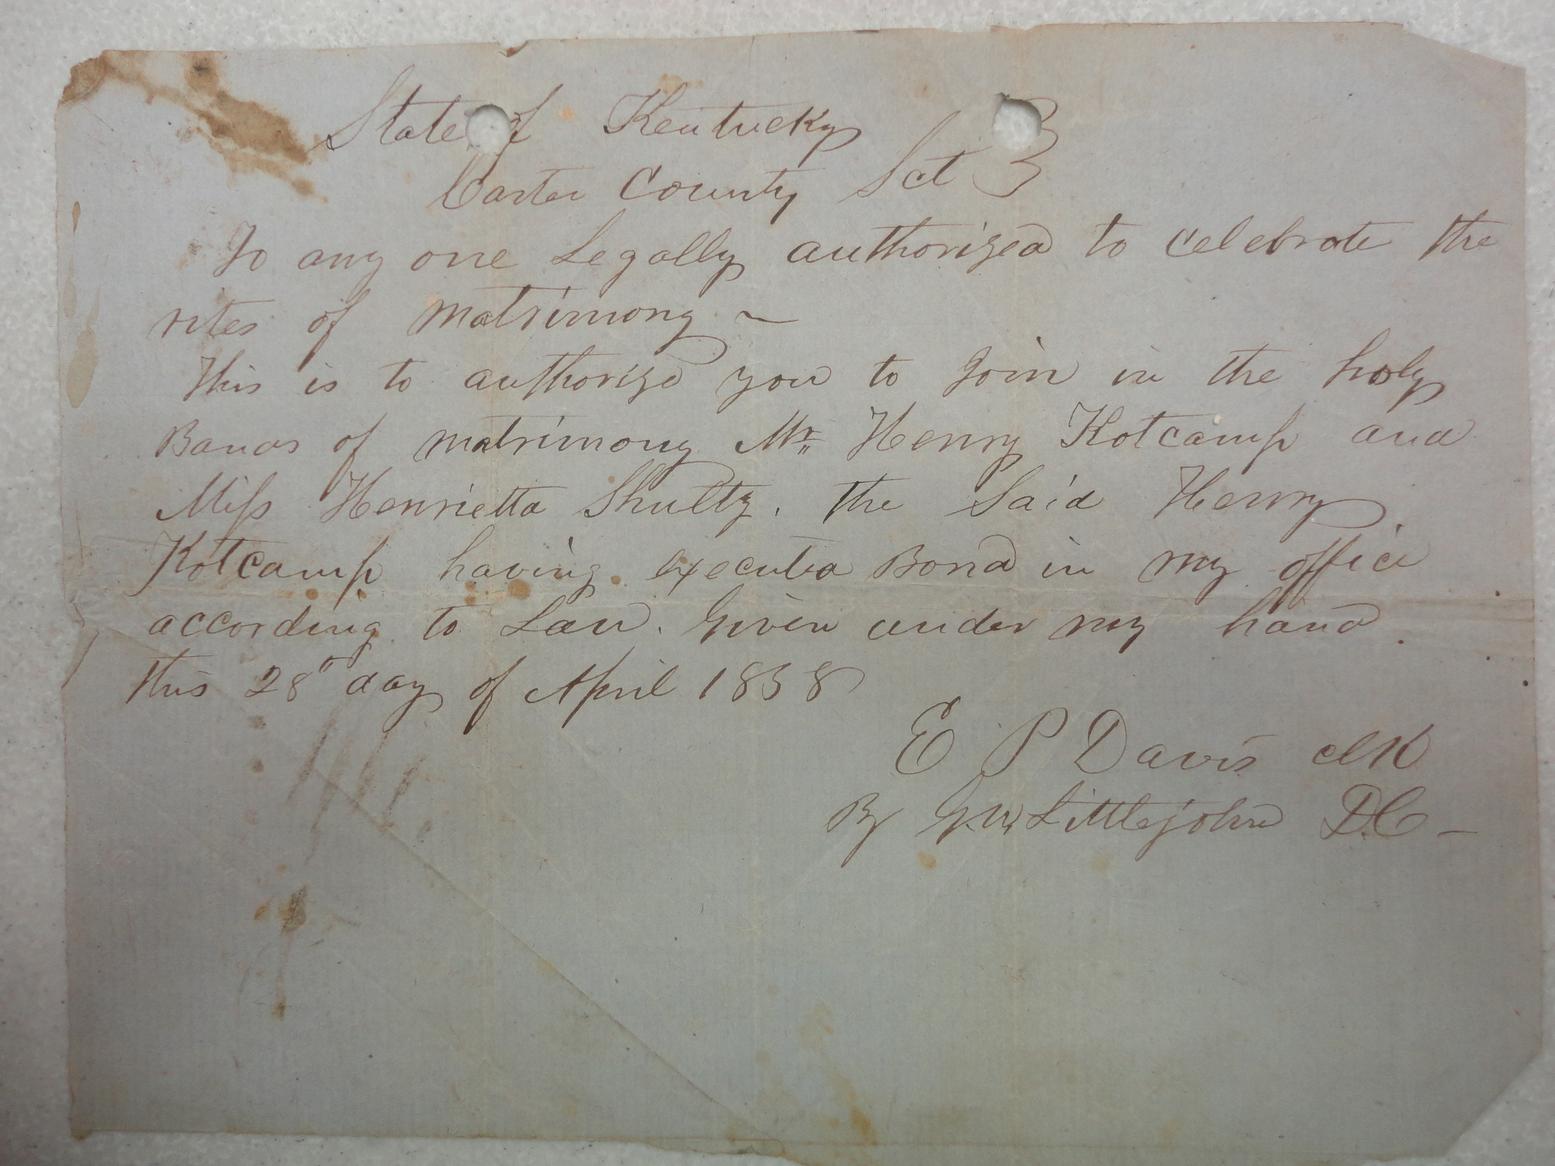 State of Kentucky
Carter County Sct
To any one Legally authorized to celebrate the
rites of matrimony ~
This is to authorize you to Join in the holy
Bands of matrimony Mr Henry Kotcamp and
Miss Henrietta Shultz. the Said Henry
Kotcamp having executed Bond in my office
according to Law. Given under my hand.
this 28th day of April 1858
E P Davis clk
By G.W. Littlejohn D.C. –